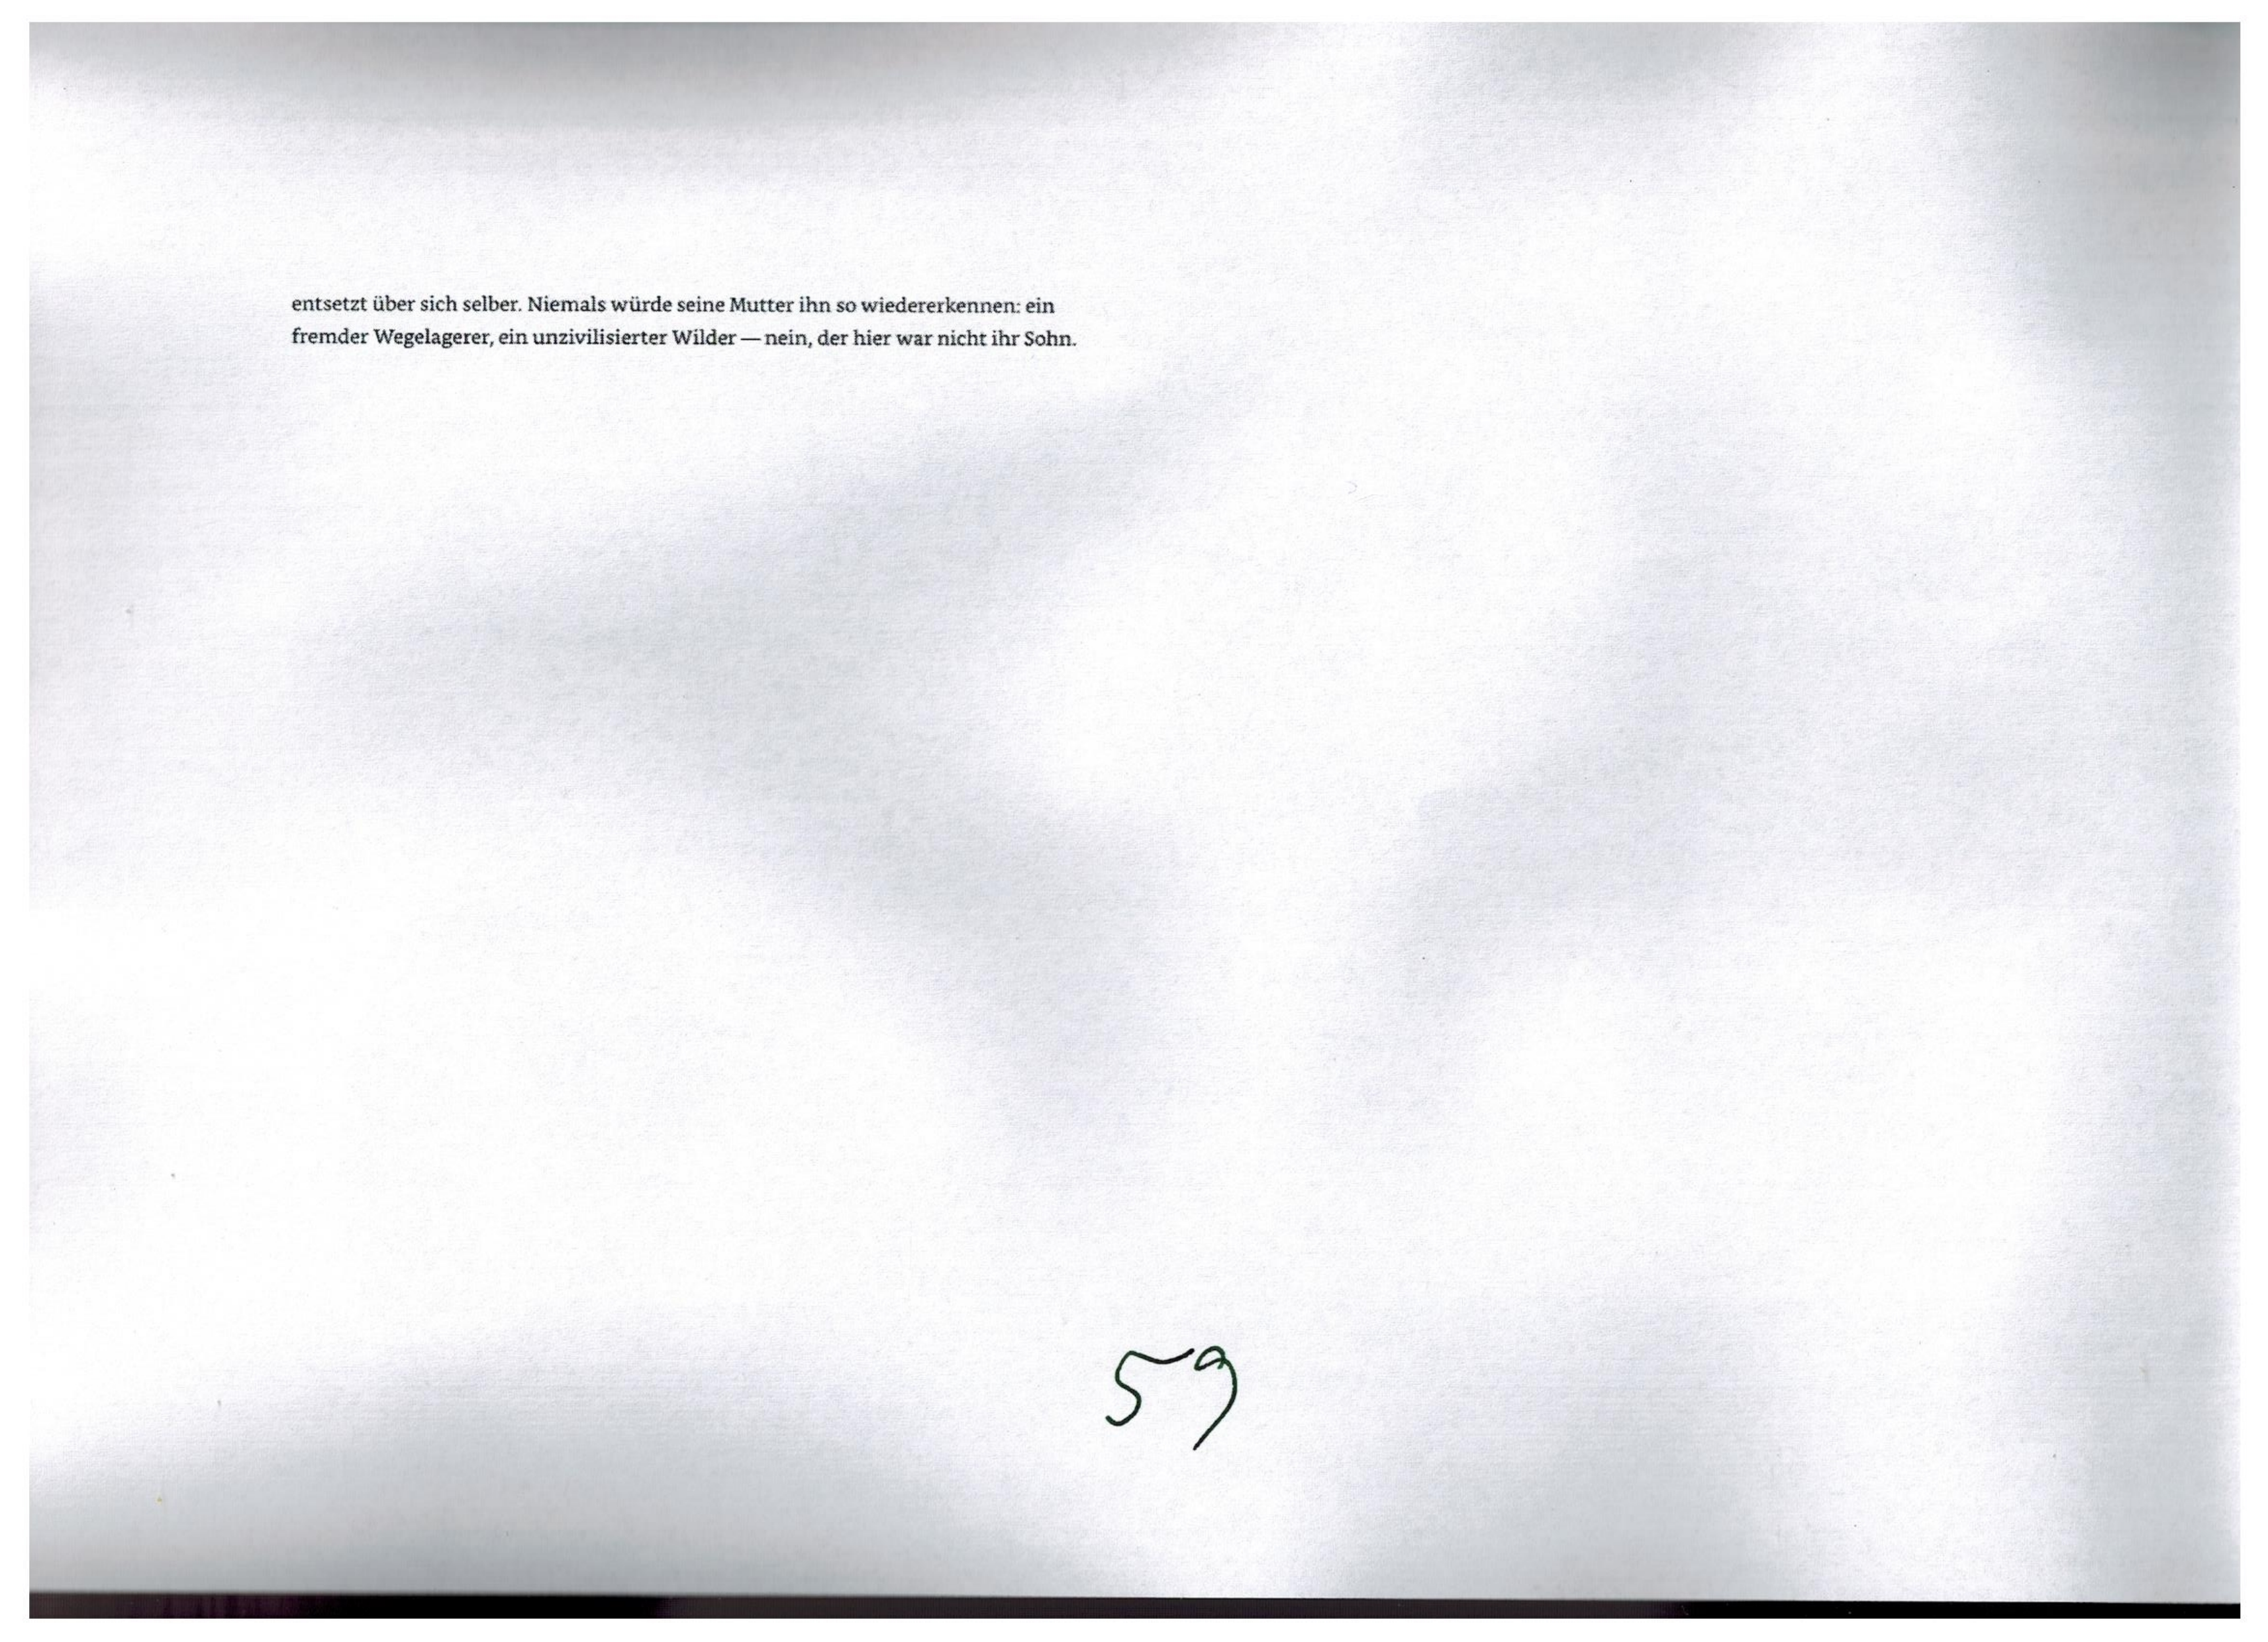 entsetzt über sich selber. Niemals würde seine Mutter ihn so wiedererkennen: ein
fremder Wegelagerer, ein unzivilisierter Wilder — nein, der hier war nicht ihr Sohn.
59